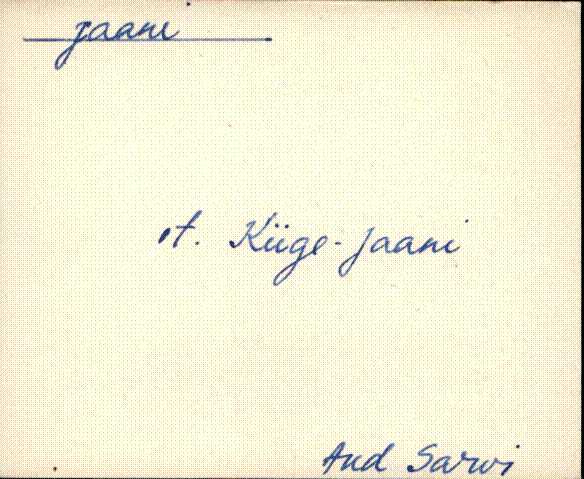 Jaani
vt. Kiige-Jaani
And Sarvi